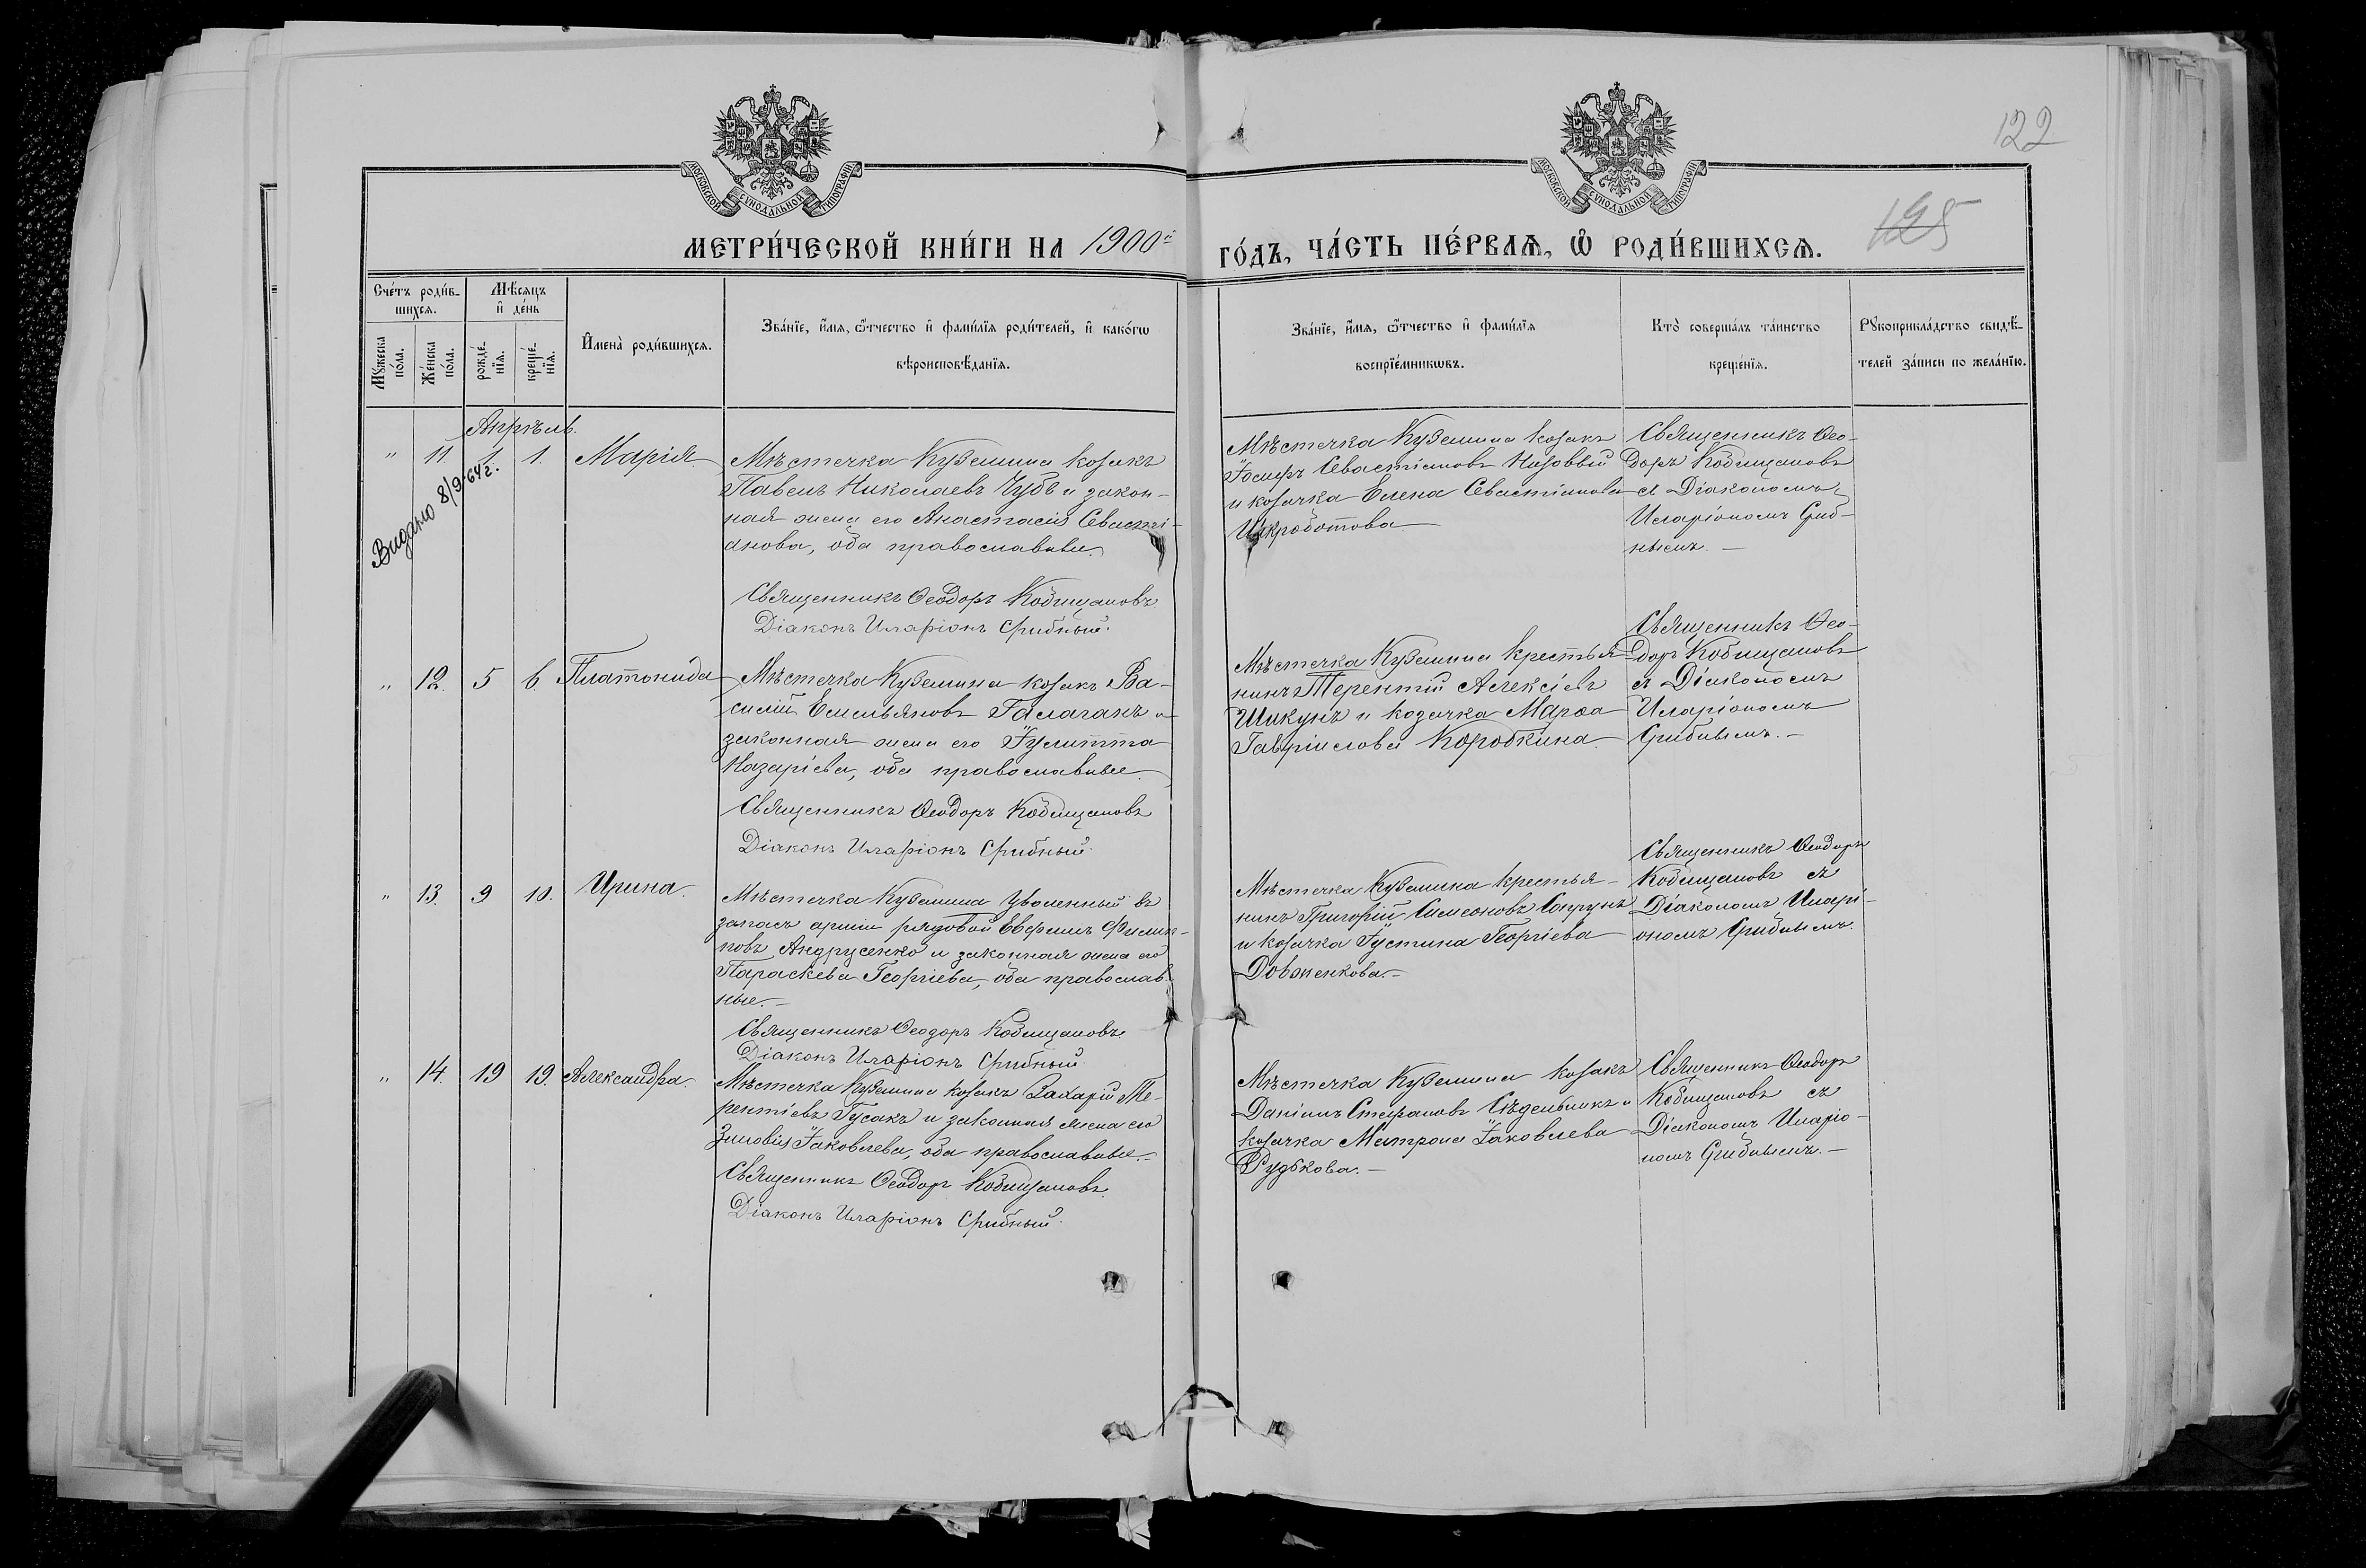 122
125
МОСКОВСКОЙ СѴНОДАЛЬНОЙ ТИПОГРАФІИ
МОСКОВСКОЙ СѴНОДАЛЬНОЙ ТИПОГРАФІИ
МЕТРИ́ЧЕСКОЙ КНИ́ГИ НА 1900й
ГО́ДЪ, ЧА́СТЬ ПЕ́РВАѦ, Ѿ РОДИ́ВШИХСѦ.
Сче́тъ роди́в-
шихсѧ.
Мѣ́сѧцъ
и҆ де́нь
Мꙋ́жеска
по́ла.
Же́нска
по́ла.
рожде́-
нїѧ.
креще́-
нїѧ.
И҆мена̀ роди́вшихсѧ.
Зва́нїе, и҆́мѧ, ѻ҆́тчество и҆ фами́лїѧ роди́телей, и҆ како́гѡ
вѣроисповѣ́данїѧ.
Зва́нїе, и҆́мѧ, ѻ҆́тчество и҆ фами́лїѧ
воспрїе́мникѡвъ.
Кто̀ соверша́лъ та́инство
креще́нїѧ.
Рꙋкоприкла́дство свидѣ́-
телей за́писи по жела́нїю.
Апрѣль.
" 11 1 1. Марія
Видано 8/9-64г.
Мѣстечка Куземина козакъ
Павелъ Николаевъ Чубъ и закон-
ная жена его Анастасія Севасті-
анова, оба православные.
Священникъ Ѳеодоръ Кобищановъ
Діаконъ Иларіонъ Срибный.
Мѣстечка Куземина козакъ
Іосифъ Севастіановъ Низовый
и козачка Елена Севастіанова
Шкроботова
Священникъ Ѳео-
доръ Кобищановъ
съ Діакономъ
Иларіономъ Сриб-
нымъ. —
" 12. 5 6. Платонида
Мѣстечка Куземина козакъ Ва-
силій Емельяновъ Галаганъ и
законная жена его Іулитта
Назаріева, оба православные.
Священникъ Ѳеодоръ Кобищановъ
Діаконъ Иларіонъ Срибный.
Мѣстечка Куземина крестья-
нинъ Терентій Алексіевъ
Шикунъ и козачка Марѳа
Гавріилова Коробкина.
Священникъ Ѳео-
доръ Кобищановъ
съ Діакономъ
Иларіономъ
Срибнымъ. —
" 13. 9 10. Ирина.
Мѣстечка Куземина уволенный въ
запасъ арміи рядовой Евфимъ Филип-
повъ Андрусенко и законная жена его
Параскева Георгіева, оба православ-
ные. —
Священникъ Ѳеодоръ Кобищановъ
Діаконъ Иларіонъ Срибный
Мѣстечка Куземина крестья-
нинъ Григорій Симеоновъ Супрунъ
и козачка Іустина Георгіева
Довженкова. —
Священникъ Ѳеодоръ
Кобищановъ съ
Діакономъ Иларі-
ономъ Срибнымъ.
" 14. 19 19. Александра
Мѣстечка Куземина козакъ Захарій Те-
рентіевъ Гусакъ и законная жена его
Зиновія Іаковлева, оба православные. —
Священникъ Ѳеодоръ Кобищановъ
Діаконъ Иларіонъ Срибный.
Мѣстечка Куземина козакъ
Даніилъ Стефановъ Сѣдельникъ и
козачка Матрона Іаковлева
Рудькова. —
Священникъ Ѳеодоръ
Кобищановъ съ
Діакономъ Иларіо-
номъ Срибнымъ. —